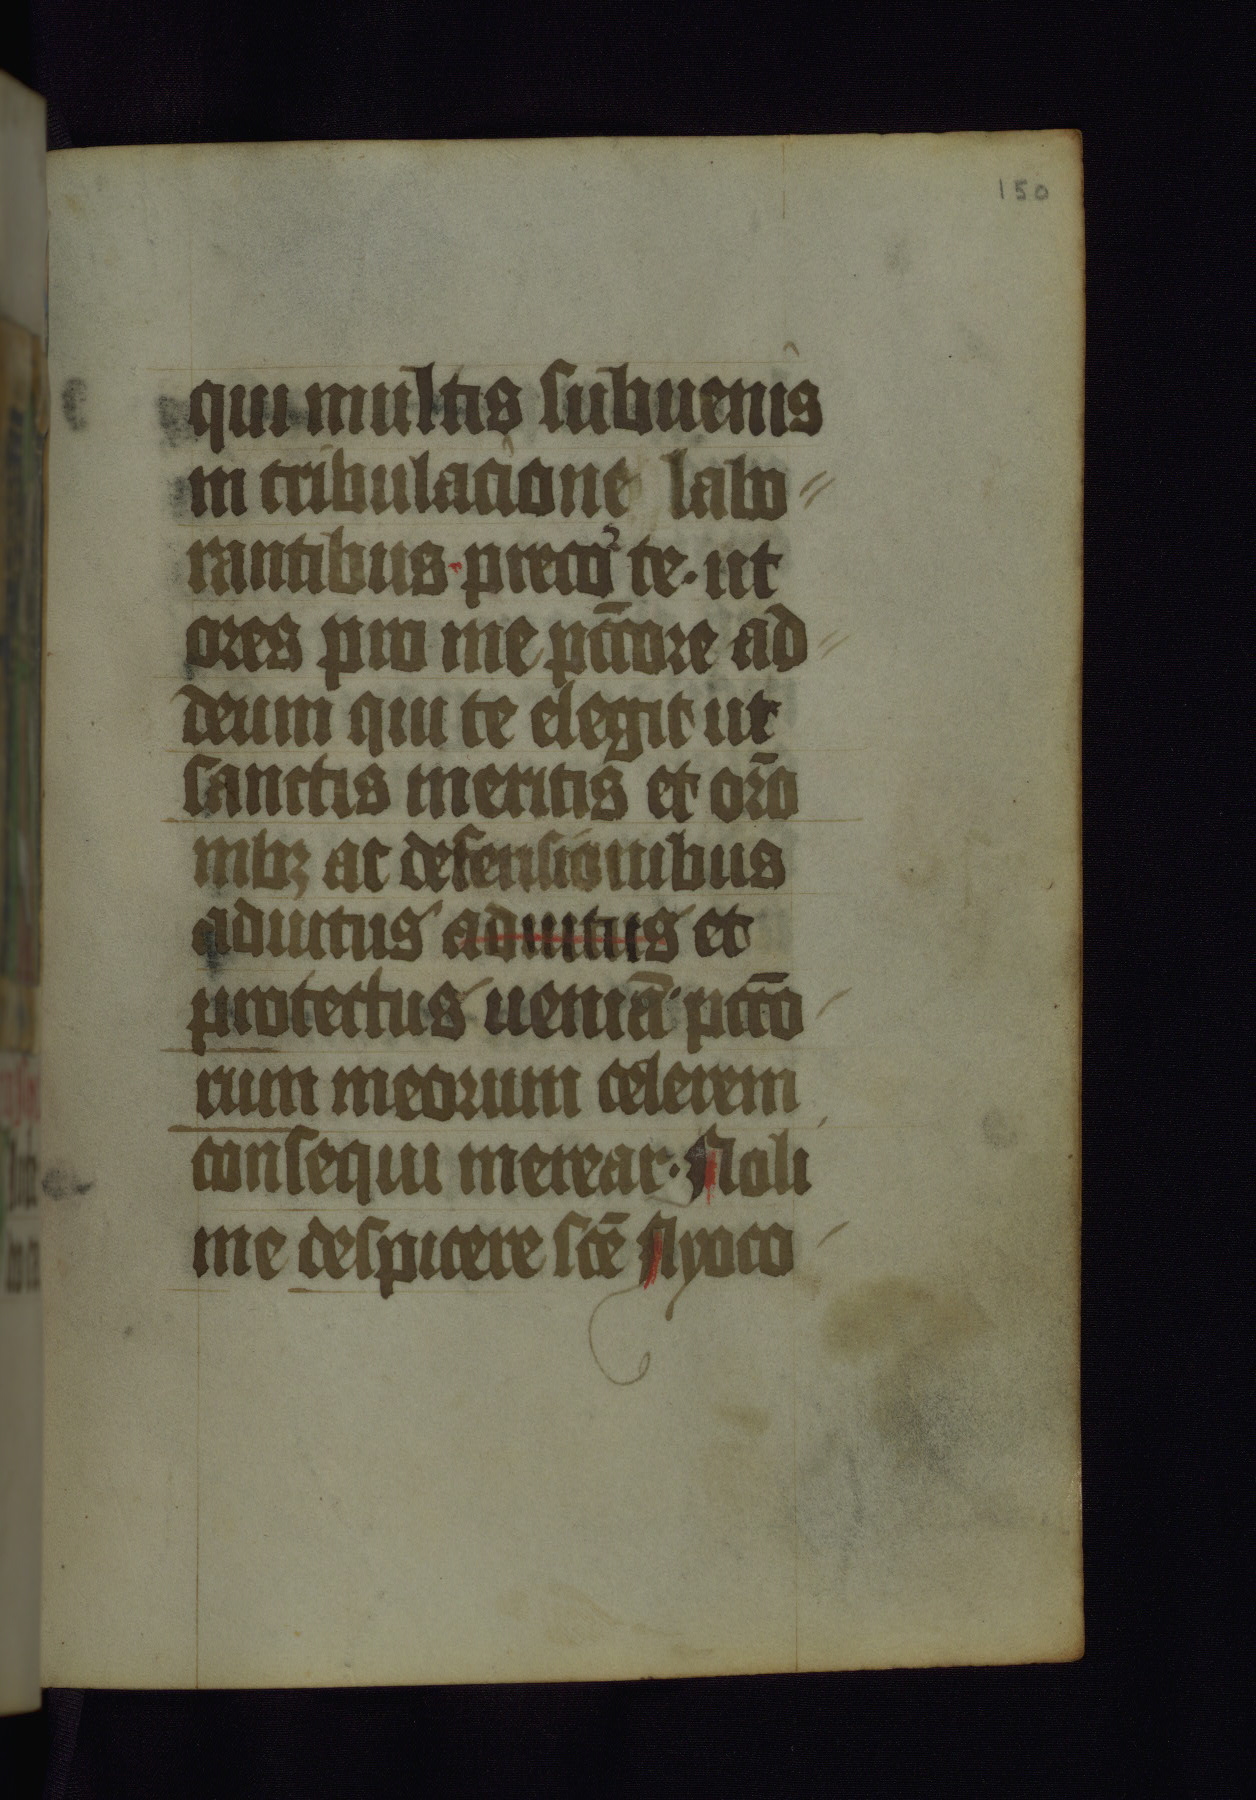 150
qui multis subuenis
in tribulacione labo〃
rantibus· preco² te· ut
ores pro me pcc̄ore ad〃
deum qui te elegit ut
sanctis meritis et orō
nibꝫ ac defensionibus
adiutus adiutus et
protectus ueniā pcc̄o/
rum meorum celerem
consequi merear· Noli
me despicere scē Nyoco/